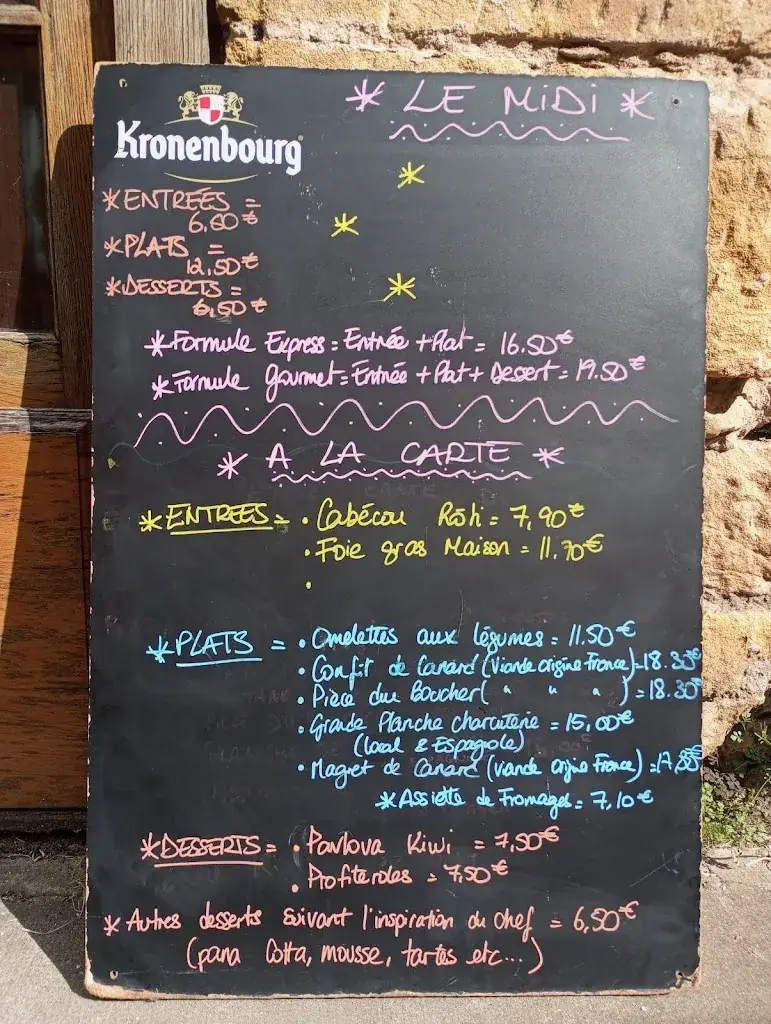 Kronenbourg
* LE MIDI *
* ENTRÉES =
6,50 €
* PLATS =
12,50 €
* DESSERTS =
6,50 €
* Formule Express = Entrée + Plat = 16.50 €
* Formule gourmet = Entrée + Plat + Dessert = 19.50 €
* A LA CARTE *
* ENTREES = • Cabécou Rôti = 7,90 €
• Foie gras Maison = 11.70 €
•
* PLATS = • Omelettes aux légumes = 11.50 €
• Confit de Canard (Viande origine France) = 18.30 €
• Pièce du Boucher ( " " " ) = 18.30 €
• Grande Planche charcuterie = 15,00 €
(local & Espagnole)
• Magret de Canard (viande origine France) = 17,80 €
* Assiette de Fromages = 7,10 €
* DESSERTS = • Pavlova Kiwi = 7,50 €
• Profiteroles = 7.50 €
* Autres desserts suivant l'inspiration du chef = 6,50 €
(pana Cotta, mousse, tartes etc...)